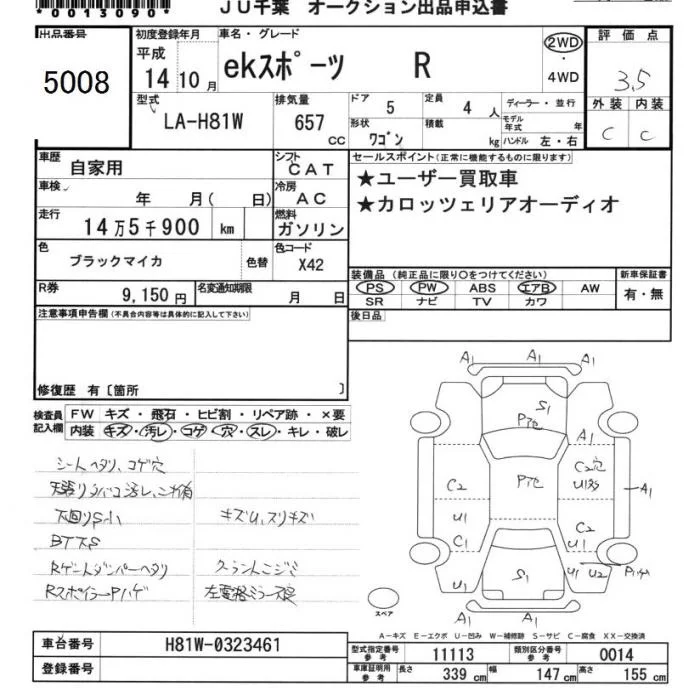 *0013090*
JU千葉　オークション出品申込書
出品番号 初度登録年月 車名・グレード 評価点
5008 平成 14 10月 ekスポーツ R 2WD ・ 4WD 3.5
型式 LA-H81W 排気量 657 CC ドア 5 定員 4 人 ディーラー・並行 外装 内装
形状 ワゴン 積載 kg モデル年式 年 ハンドル 左・右 C C
車歴 自家用 シフト CAT セールスポイント(正常に機能するものに限ります)
車検 年 月( 日) 冷房 AC ★ユーザー買取車
走行 14万5千900 km 燃料 ガソリン ★カロッツェリアオーディオ
色 ブラックマイカ 色替 色コード X42
装備品 (純正品に限り○をつけてください) 新車保証書
R券 9,150円 名変通知期限 月 日 PS PW ABS エアB AW 有・無
SR ナビ TV カワ
注意事項申告欄(不具合内容等は具体的に記入して下さい) 後日品
修復歴 有〔箇所 〕
検査員記入欄 FW キズ・飛石・ヒビ割・リペア跡・×要
内装 キズ・汚レ・コゲ・穴・スレ・キレ・破レ
シートヘタリ、コゲ穴
下廻りS小 キズU、スリキズ
Rゲートダンパーヘタリ
RスポイラーPハゲ
A1 A1 A1
S1
P
A1 A1
C2 P C2穴
U1 A1
U1 C2
C1 U1
U1 S1 U1 U2
A1 A1 A1
スペア
A-キズ E-エクボ U-凹み W-補修跡 S-サビ C-腐食 XX-交換済
車台番号 H81W-0323461 型式指定番号 参考 11113 類別区分番号 参考 0014
登録番号 車庫証明用 参考 長さ 339 cm 幅 147 cm 高さ 155 cm